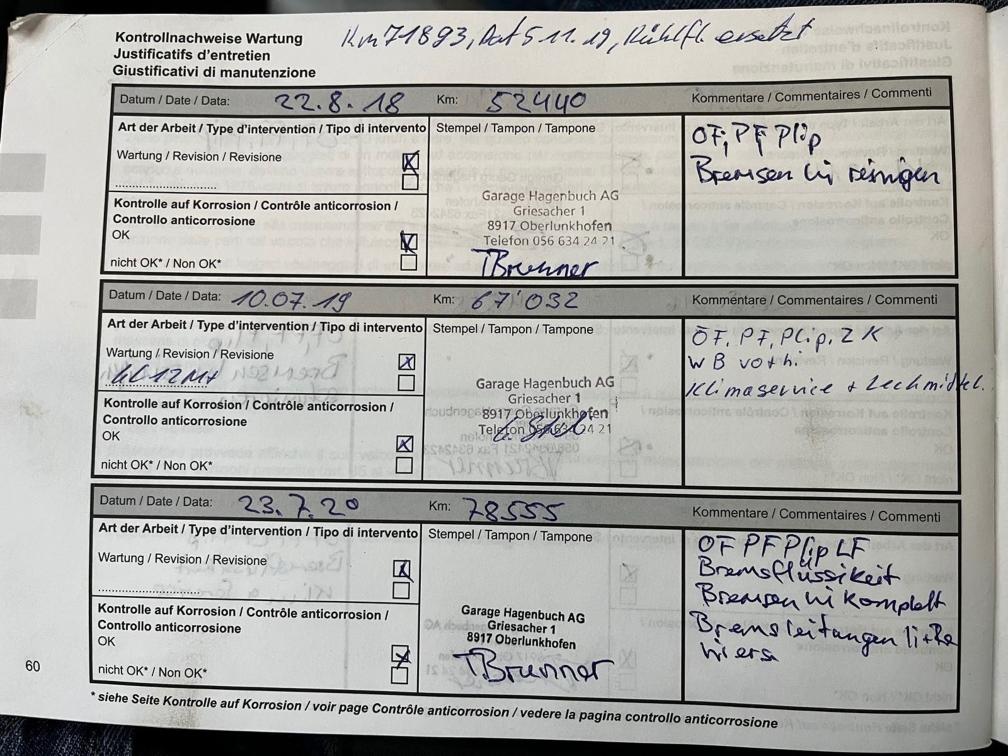 Kontrollnachweise Wartung
Justificatifs d'entretien
Giustificativi di manutenzione
Km 71893, Dat 5.11.19, Kühlfl. ersetzt
Datum / Date / Data: 22.8.18 Km: 52440 Kommentare / Commentaires / Commenti
Art der Arbeit / Type d'intervention / Tipo di intervento
Stempel / Tampon / Tampone
OF, PF, Plip
Wartung / Revision / Revisione
Bremsen hi reinigen
Kontrolle auf Korrosion / Contrôle anticorrosion /
Controllo anticorrosione
OK
nicht OK* / Non OK*
Garage Hagenbuch AG
Griesacher 1
8917 Oberlunkhofen
Telefon 056 634 24 21
TBrunner
Datum / Date / Data: 10.07.19 Km: 67'032 Kommentare / Commentaires / Commenti
Art der Arbeit / Type d'intervention / Tipo di intervento
Stempel / Tampon / Tampone
ÖF, PF, Plip, ZK
Wartung / Revision / Revisione
WB vo + hi
Klimaservice +
Kontrolle auf Korrosion / Contrôle anticorrosion /
Controllo anticorrosione
OK
nicht OK* / Non OK*
Garage Hagenbuch AG
Griesacher 1
8917 Oberlunkhofen
Telefon 056 634 24 21
Datum / Date / Data: 23.7.20 Km: 78555 Kommentare / Commentaires / Commenti
Art der Arbeit / Type d'intervention / Tipo di intervento
Stempel / Tampon / Tampone
OF PF Plip LF
Wartung / Revision / Revisione
Bremsflüssikeit
Bremsen hi Komplett
Bremsleitungen li + Re
hi ers
Kontrolle auf Korrosion / Contrôle anticorrosion /
Controllo anticorrosione
OK
nicht OK* / Non OK*
Garage Hagenbuch AG
Griesacher 1
8917 Oberlunkhofen
TBrunner
60
* siehe Seite Kontrolle auf Korrosion / voir page Contrôle anticorrosion / vedere la pagina controllo anticorrosione